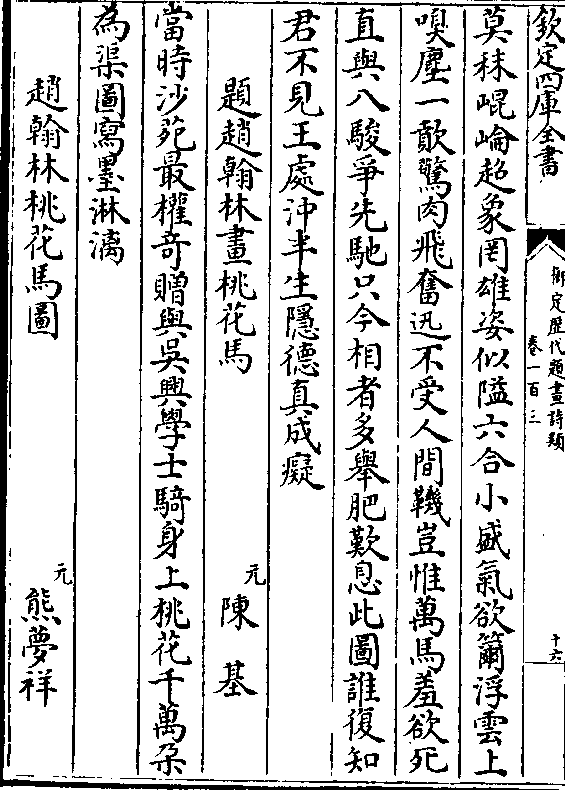 欽定四庫全書
御定歷代題畫詩類
卷一百三
十六
莫秣崐崘超象罔雄姿似隘六合小盛氣欲籋浮雲上
嗅塵一歕驚肉飛奮迅不受人間鞿豈惟萬馬羞欲死
直與八駿爭先馳只今相者多舉肥歎息此圖誰復知
君不見王處沖半生隱德真成癡
題趙翰林畫桃花馬
元 陳基
當時沙苑最權竒贈與吳興學士騎身上桃花千萬朶
為渠圖寫墨淋漓
趙翰林桃花馬圖
元 熊夢祥